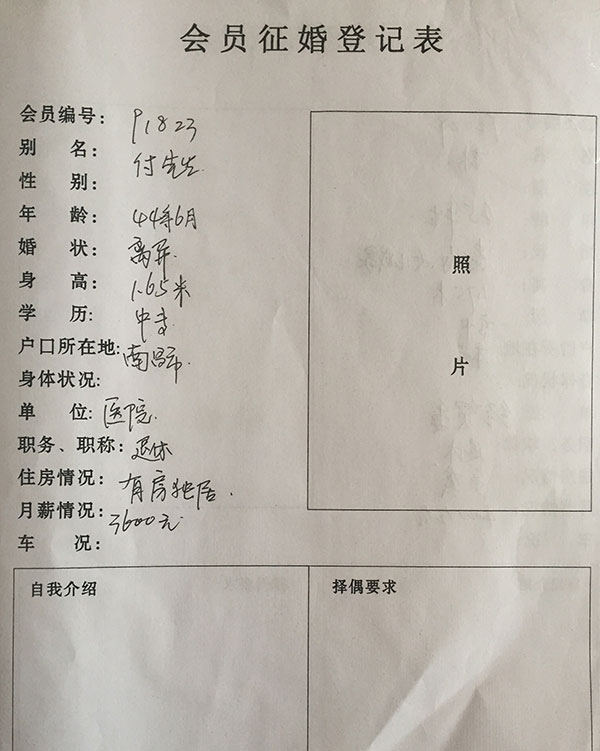 会员征婚登记表
会员编号: 91823
别 名: 付先生
性 别:
年 龄: 44年6月
婚 状: 离异
身 高: 1.65米
学 历: 中专
户口所在地: 南昌市
身体状况:
单 位: 医院
职务、职称: 退休
住房情况: 有房独居.
月薪情况: 3600元
车 况:
照
片
自我介绍
择偶要求